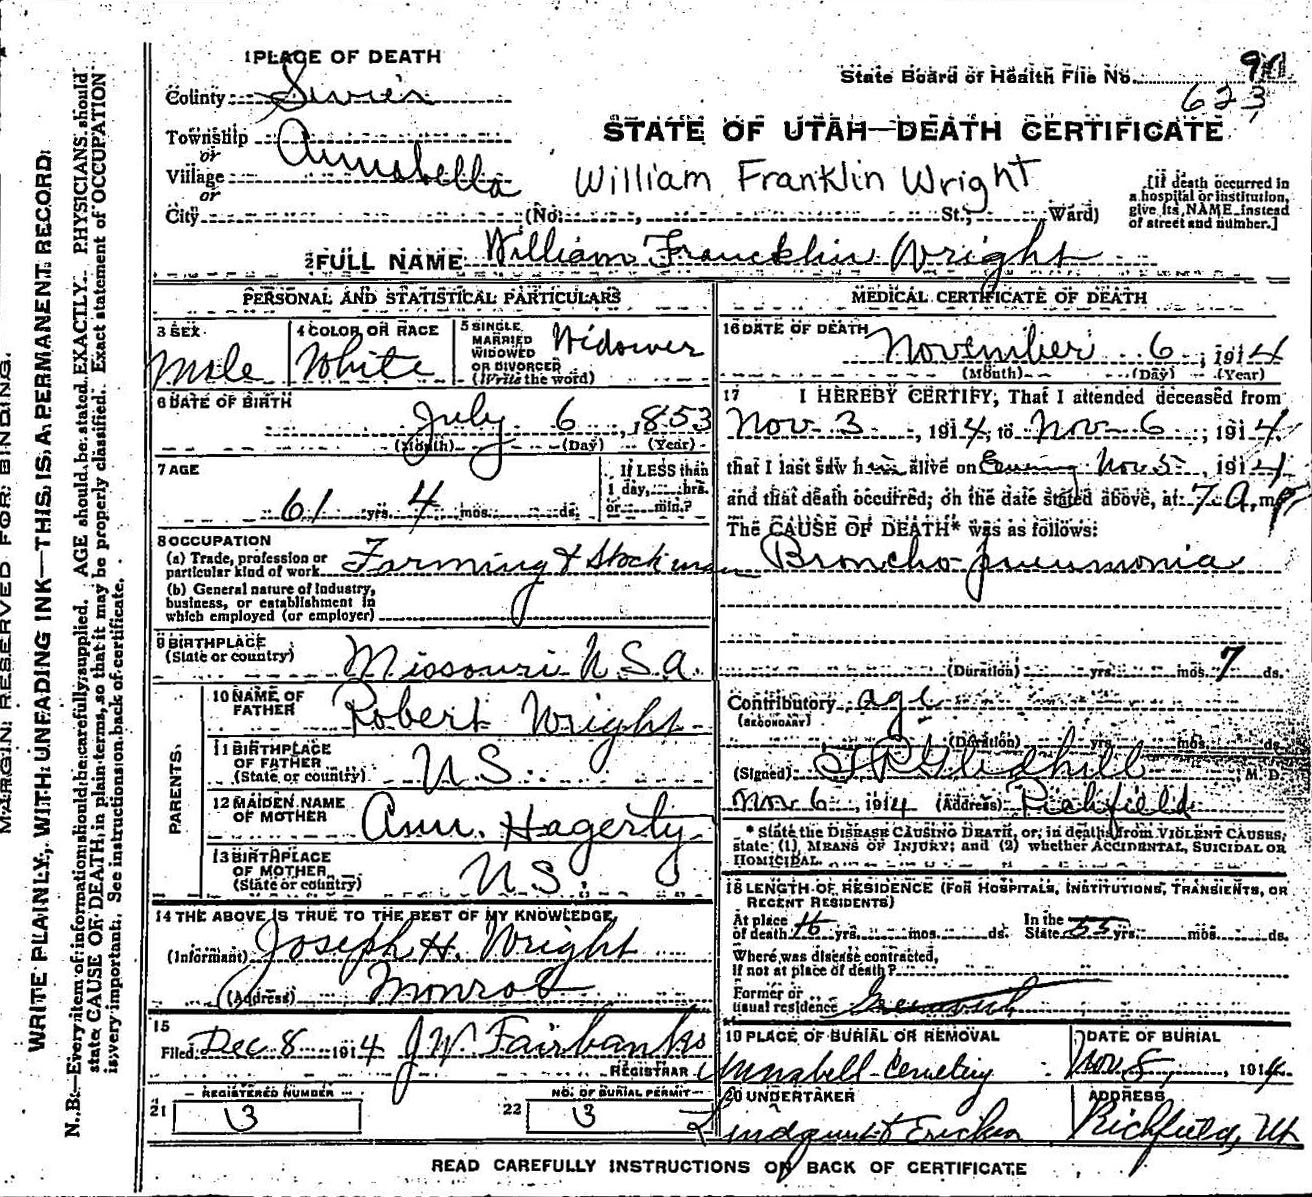 MARGIN RESERVED FOR BINDING.
WRITE PLAINLY, WITH UNFADING INK—THIS IS A PERMANENT RECORD.
N.B.—Every item of information should be carefully supplied. AGE should be stated EXACTLY. PHYSICIANS should
state CAUSE OF DEATH in plain terms, so that it may be properly classified. Exact statement of OCCUPATION
is very important. See instructions on back of certificate.
1 PLACE OF DEATH
State Board of Health File No.
623
County Sevier
STATE OF UTAH—DEATH CERTIFICATE
Township
or
Village Annabella
or
William Franklin Wright
City (No. , St.; Ward)
[If death occurred in
a hospital or institution,
give its NAME instead
of street and number.]
2 FULL NAME William Francklin Wright
PERSONAL AND STATISTICAL PARTICULARS
3 SEX
Male
4 COLOR OR RACE
White
5 SINGLE
MARRIED
WIDOWED
OR DIVORCED
(Write the word)
Widower
6 DATE OF BIRTH
July 6, 1853
(Month) (Day) (Year)
7 AGE
61 yrs. 4 mos. ds.
If LESS than
1 day, hrs.
or min.?
8 OCCUPATION
(a) Trade, profession or
particular kind of work Farming & Stockman
(b) General nature of industry,
business, or establishment in
which employed (or employer)
9 BIRTHPLACE
(State or country)
Missouri U.S.A.
PARENTS.
10 NAME OF
FATHER
Robert Wright
11 BIRTHPLACE
OF FATHER
(State or country)
U.S.
12 MAIDEN NAME
OF MOTHER
Ann. Hagerty
13 BIRTHPLACE
OF MOTHER
(State or country)
U.S.
14 THE ABOVE IS TRUE TO THE BEST OF MY KNOWLEDGE
(Informant) Joseph H. Wright
(Address) Monroe
15
Filed Dec 8 1914 J W Fairbanks
REGISTRAR
REGISTERED NUMBER
21 13
NO. OF BURIAL PERMIT
22 13
MEDICAL CERTIFICATE OF DEATH
16 DATE OF DEATH
November 6, 1914
(Month) (Day) (Year)
17 I HEREBY CERTIFY, That I attended deceased from
Nov 3, 1914, to Nov 6, 1914,
that I last saw him alive on Evening Nov 5, 1914
and that death occurred, on the date stated above, at 7 A.m.
The CAUSE OF DEATH* was as follows:
Broncho-pneumonia
(Duration) yrs. mos. 7 ds.
Contributory age
(SECONDARY)
(Duration) yrs. mos. ds.
(Signed) Gledhill, M.D.
Nov 6, 1914 (Address) Richfield
* State the DISEASE CAUSING DEATH, or, in deaths from VIOLENT CAUSES,
state (1) MEANS OF INJURY; and (2) whether ACCIDENTAL, SUICIDAL OR
HOMICIDAL.
18 LENGTH OF RESIDENCE (FOR HOSPITALS, INSTITUTIONS, TRANSIENTS, OR
RECENT RESIDENTS)
At place
of death 16 yrs. mos. ds.
In the
State 55 yrs. mos. ds.
Where was disease contracted,
if not at place of death?
Former or
usual residence
19 PLACE OF BURIAL OR REMOVAL
Annabell Cemetery
DATE OF BURIAL
Nov. 8, 1914
20 UNDERTAKER
ADDRESS
Richfield, Ut
READ CAREFULLY INSTRUCTIONS ON BACK OF CERTIFICATE